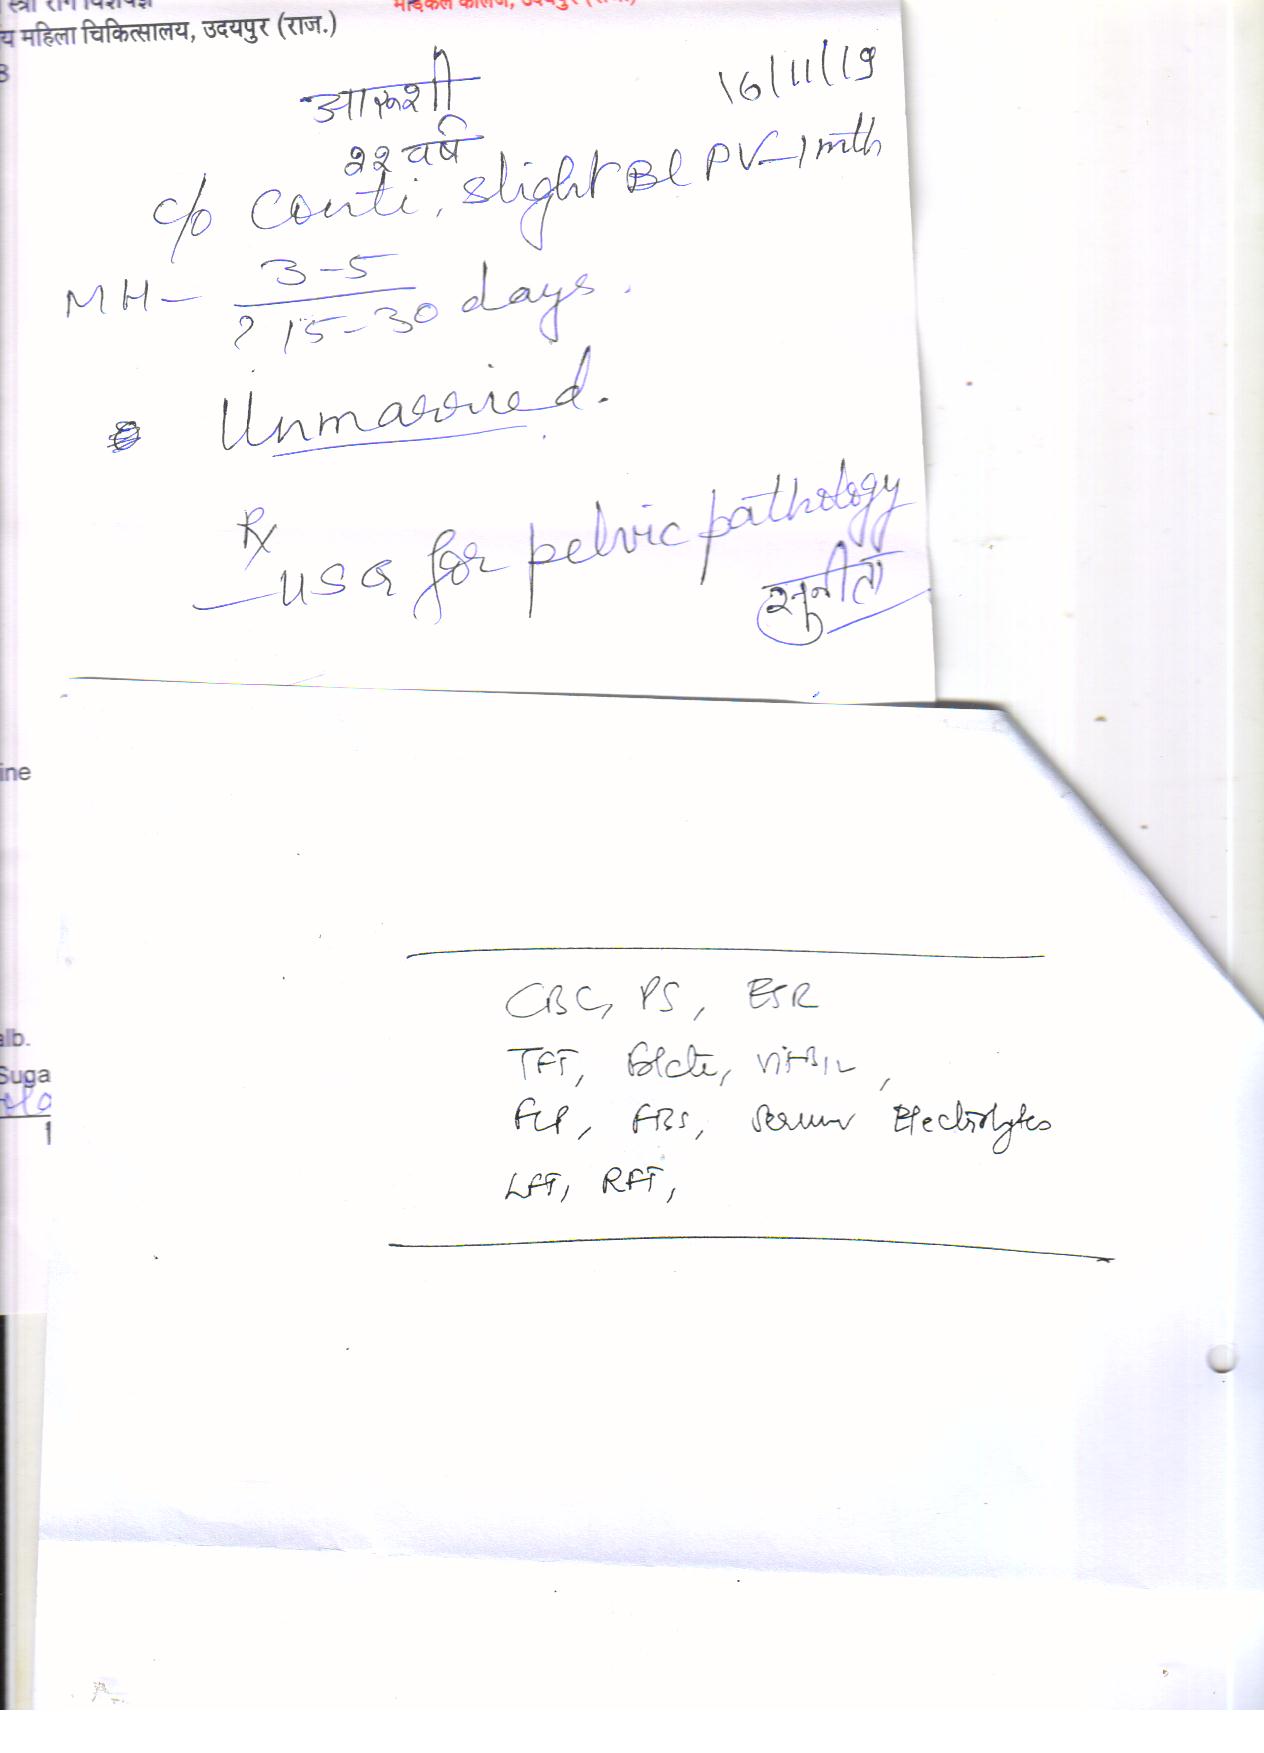 स्त्री रोग विशेषज्ञ
मेडिकल कॉलेज, उदयपुर (राज.)
य महिला चिकित्सालय, उदयपुर (राज.)
16/11/19
आरूशी
२२ वर्ष
c/o Conti, slight Bl PV - 1 mth
MH - 3-5
? 15-30 days.
Unmarried.
Rx
- USG for pelvic pathology
सुनीता
ine
CBC, PS, ESR
alb.
TFT, Folate, Vit B12,
Suga
FLP, FBS, Serum Electrolytes
1
LFT, RFT,